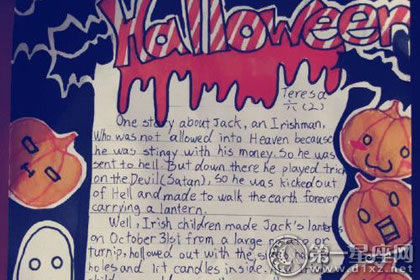 Halloween
Teresa
六(2)
One story about Jack, an Irishman,
who was not allowed into Heaven because
he was stingy with his money. So he was
sent to hell. But down there he played tric
on the Devil (Satan), So he was kicked out
of Hell and made to walk the earth forever
carrying a lantern.
Well, Irish children made Jack's lanterns
on October 31st from a large
turnip, hollowed out with the
holes and lit candles inside.
第一星座网
www.d1xz.net